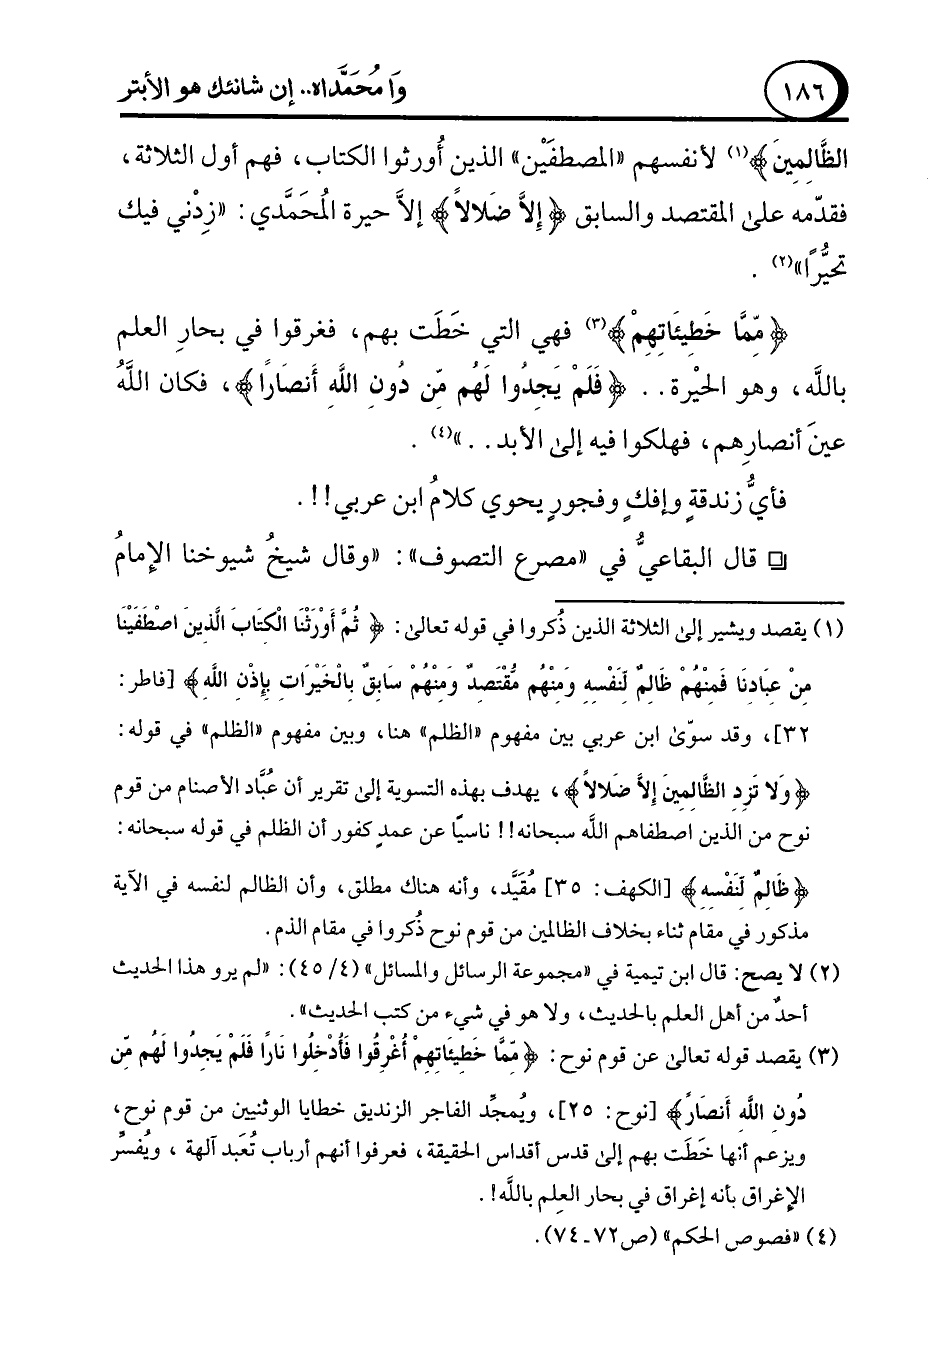 ١٨٦
وَا مُحَمَّداه.. إن شانئك هو الأبتر
الظَّالِمِينَ﴾(١) لأنفسهم «المصطفَيْن» الذين أُورثوا الكتاب، فهم أول الثلاثة،
فقدّمه على المقتصد والسابق ﴿إِلاَّ ضَلالاً﴾ إلاَّ حيرة المُحَمَّدي: «زِدْني فيك
تحيُّرًا»(٢) .
﴿مِّمَّا خَطِيئَاتِهِمْ﴾(٣) فهي التي خَطَت بهم، فغرقوا في بحارِ العلم
باللَّه، وهو الحَيْرة.. ﴿فَلَمْ يَجِدُوا لَهُم مِّن دُونِ اللَّهِ أَنصَارًا﴾، فكان اللَّهُ
عينَ أنصارِهم، فهلكوا فيه إلى الأبد..»(٤) .
فأيُّ زندقةٍ وإفكٍ وفجورٍ يحوي كلامُ ابن عربي!!.
❑ قال البقاعيُّ في «مصرع التصوف»: «وقال شيخُ شيوخنا الإمامُ
(١) يقصد ويشير إلى الثلاثة الذين ذُكروا في قوله تعالى: ﴿ثُمَّ أَوْرَثْنَا الْكِتَابَ الَّذِينَ اصْطَفَيْنَا
مِنْ عِبَادِنَا فَمِنْهُمْ ظَالِمٌ لِّنَفْسِهِ وَمِنْهُم مُّقْتَصِدٌ وَمِنْهُمْ سَابِقٌ بِالْخَيْرَاتِ بِإِذْنِ اللَّهِ﴾ [فاطر:
٣٢]، وقد سوّى ابن عربي بين مفهوم «الظلم» هنا، وبين مفهوم «الظلم» في قوله:
﴿وَلا تَزِدِ الظَّالِمِينَ إِلاَّ ضَلالاً﴾، يهدف بهذه التسوية إلى تقرير أن عُبَّاد الأصنام من قوم
نوح من الذين اصطفاهم اللَّه سبحانه!! ناسيًا عن عمدٍ كفور أن الظلم في قوله سبحانه:
﴿ظَالِمٌ لِّنَفْسِهِ﴾ [الكهف: ٣٥] مُقيَّد، وأنه هناك مطلق، وأن الظالم لنفسه في الآية
مذكور في مقام ثناء بخلاف الظالمين من قوم نوح ذُكروا في مقام الذم.
(٢) لا يصح: قال ابن تيمية في «مجموعة الرسائل والمسائل» (٤/ ٤٥): «لم يرو هذا الحديث
أحدٌ من أهل العلم بالحديث، ولا هو في شيء من كتب الحديث».
(٣) يقصد قوله تعالى عن قوم نوح: ﴿مِّمَّا خَطِيئَاتِهِمْ أُغْرِقُوا فَأُدْخِلُوا نَارًا فَلَمْ يَجِدُوا لَهُم مِّن
دُونِ اللَّهِ أَنصَارًا﴾ [نوح: ٢٥]، ويُمجِّد الفاجر الزنديق خطايا الوثنيين من قوم نوح،
ويزعم أنها خَطَت بهم إلى قدس أقداس الحقيقة، فعرفوا أنهم أرباب تُعبَد آلهة ، ويُفسِّر
الإغراق بأنه إغراق في بحار العِلم باللَّه!.
(٤) «فصوص الحكم» (ص٧٢-٧٤).